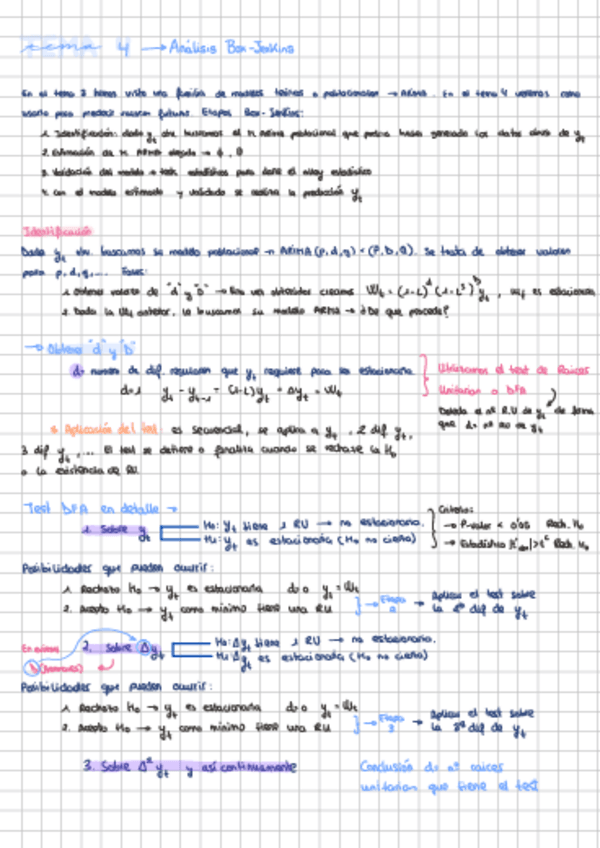 TEMA 4 → Análisis Box-Jenkins
En el tema 3 hemos visto una función de modelos teóricos o poblacionales → ARMA. En el tema 4 veremos como
usarlo para predecir valores futuros. Etapas Box-Jenkins:
1. Identificación: dado yt obs. buscamos el M ARMA poblacional que podría haber generado los datos de yt
2. Estimación de M ARMA elegido → ϕ, θ
3. Validación del modelo → tests estadísticos para
4. Con el modelo estimado y validado se realiza la predicción yt
Identificación
Dado yt obs. buscamos su modelo poblacional → ARIMA (p,d,q) × (P,D,Q). Se trata de obtener valores
para p,d,q,... Fases:
1. Obtener valores de "d" y "D" → Una vez obtenidos creamos Wt = (1-L)^d (1-L^s)^D yt, wt es estacionaria
2. Dada la Wt anterior, le buscamos su modelo ARMA → ¿De que procede?
→ Obtener "d" y "D"
d: numero de dif. regulares que yt requiere para ser estacionaria
d=1 yt - yt-1 = (1-L)yt = Δyt = Wt
Utilizamos el test de Raices
Unitarias o DFA
Detecta el nº R.U de yt de forma
que d = nº RU de yt
* Aplicación del test: es secuencial, se aplica a yt, 2 dif yt,
3 dif yt,... El test se detiene o finaliza cuando se rechace la H0
o la existencia de RU.
Test DFA en detalle →
1. Sobre yt
H0: yt tiene 1 RU → no estacionaria.
H1: yt es estacionaria (H0 no cierta)
Criterio:
→ P-valor < 0'05 Rech. H0
→ Estadístico Rech. H0
Posibilidades que pueden ocurrir:
1. Rechazo H0 → yt es estacionaria d=0 yt = Wt
2. Acepto H0 → yt como mínimo tiene una RU
→ Etapa 2 → Aplicar el test sobre
la 2ª dif de yt
2. Sobre Δyt
H0: Δyt tiene 1 RU → no estacionaria.
H1: Δyt es estacionaria (H0 no cierta)
Posibilidades que pueden ocurrir:
1. Rechazo H0 → yt es estacionaria d=0 yt = Wt
2. Acepto H0 → yt como mínimo tiene una RU
→ Etapa 3 → Aplicar el test sobre
la 3ª dif de yt
3. Sobre Δ²yt y así continuamente
Conclusión d = nº raices
unitarias que tiene el test